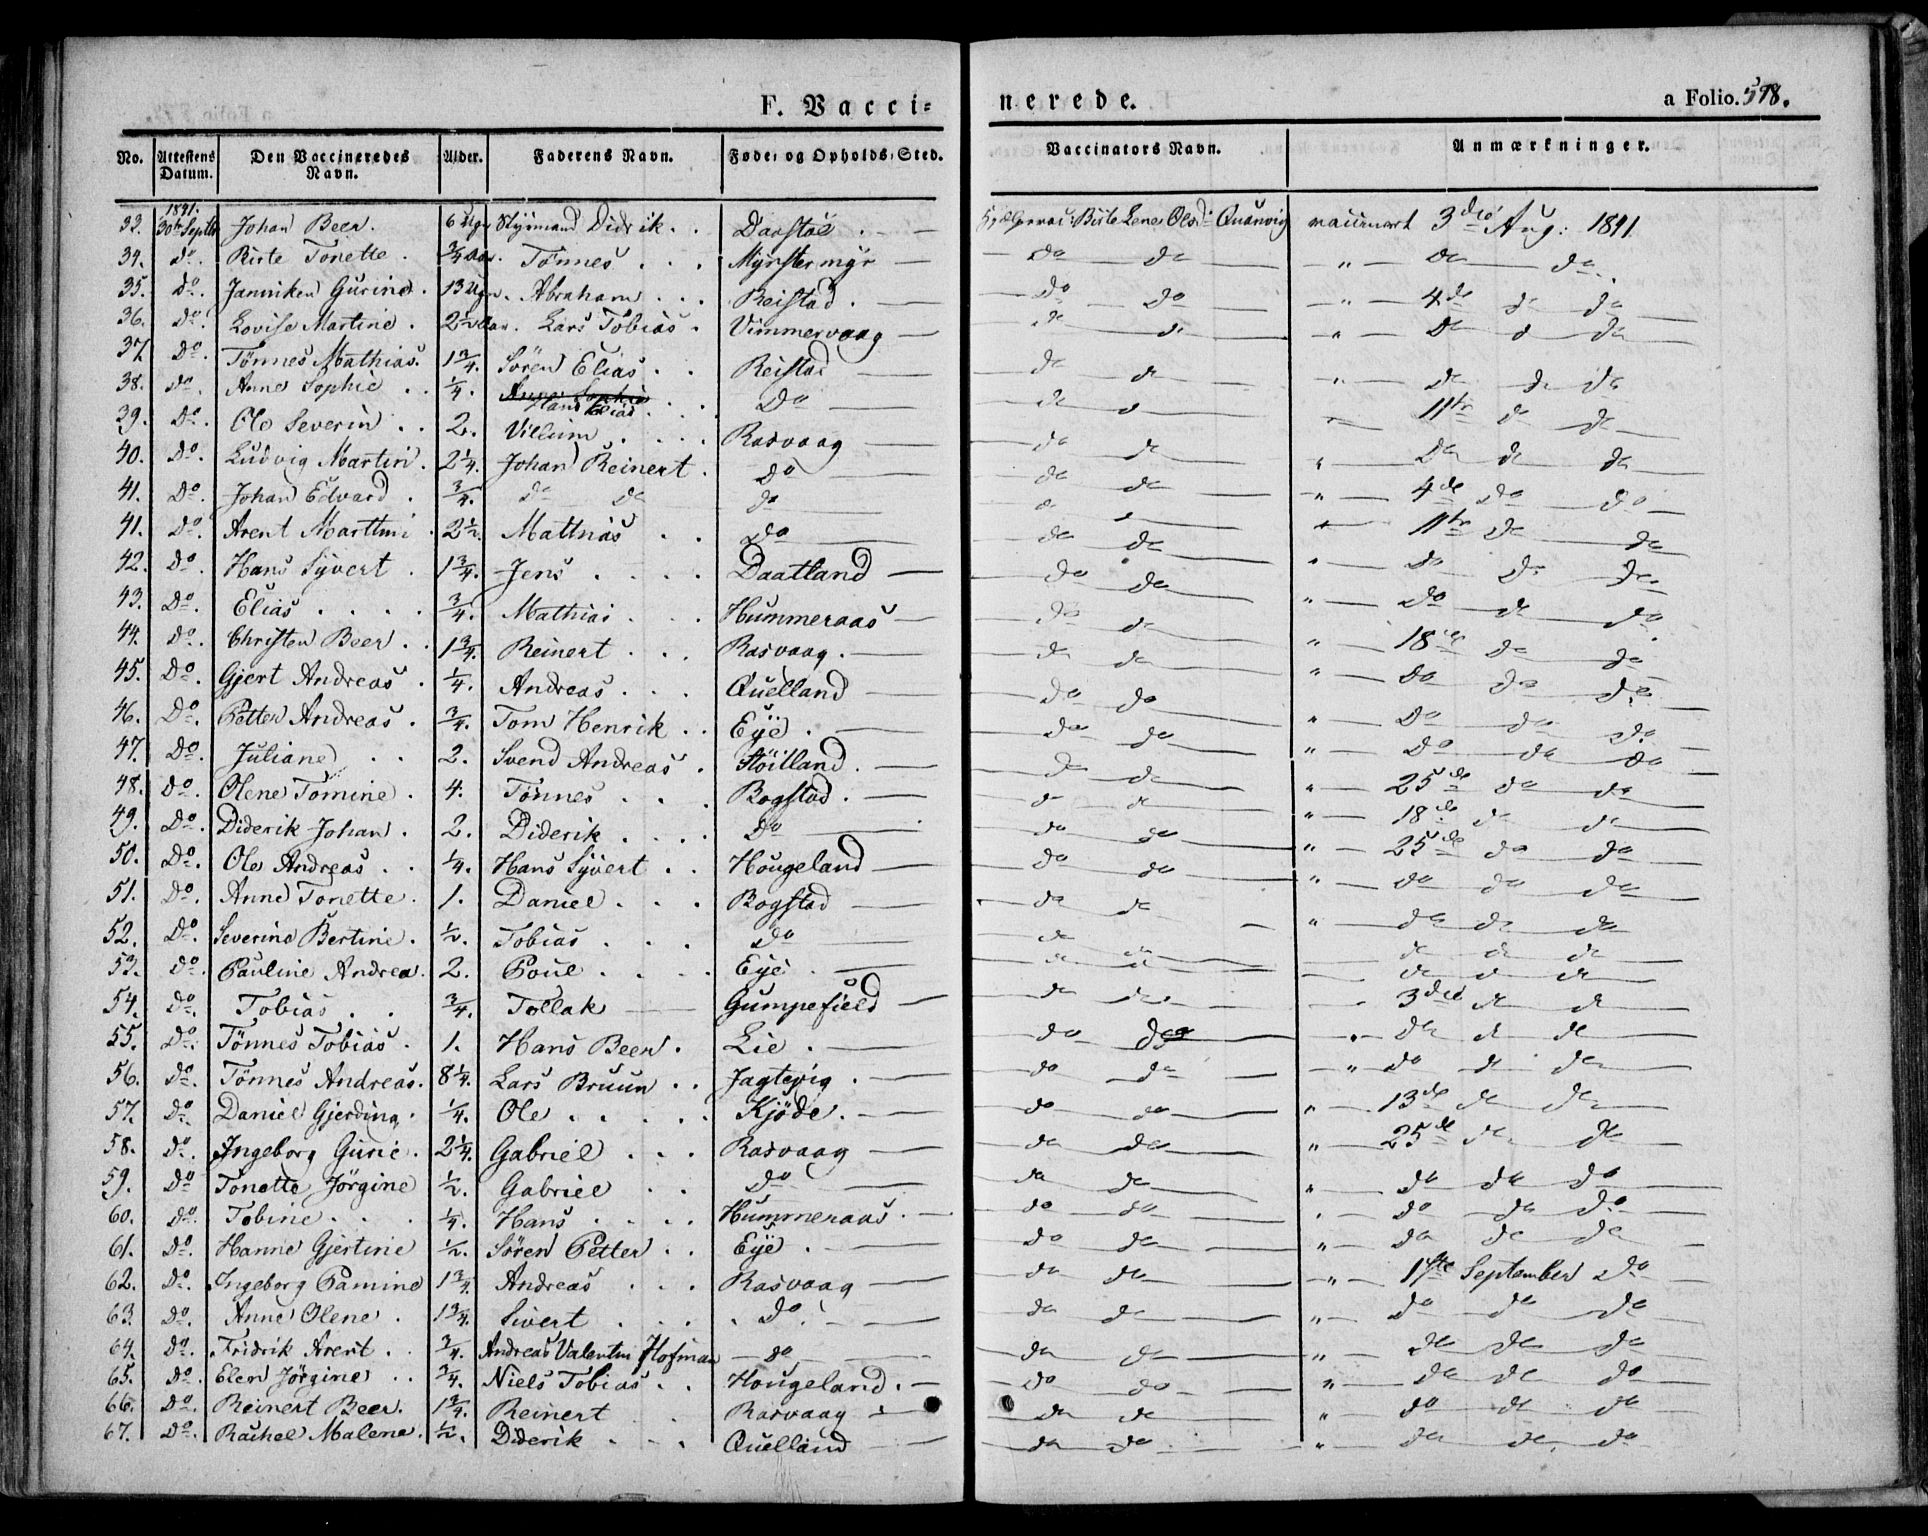 F. Vaccinerede. a Folio. 578.
No. Attestens Datum. Den Vaccineredes Navn. Alder. Faderens Navn. Føde- og Opholds-Sted. Vaccinators Navn. Anmærkninger.
1841.
33. 30te Septbr Johan Beer. 6 Ugr Styrmand Didrik Daastöe Olsd: Quanvig vaccineret 3die Aug: 1841
34. Do. Birte Tonette 3/4 Aar. Tönnes Do Do " Do Do
35. Do. Janniken Gurine 13 Ugr. Abraham Reistad Do Do " 4de do do
36. Do. Lovise Martine 2 1/2 Aar. Lars Tobias Vimmervaag do do " Do do do
37. Do. Tönnes Mathias 1 3/4. Sören Elias Reistad do do " do do do
38. Do. Anne Sophie 1/4. Hans Elias Do do do " 11te do do
39. Do. Ole Severin 2. Villum Rasvaag do do " Do do do
40. Do. Ludvig Martin 2 1/4. Johan Reinert Do do do " 4de do do
41. Do. Johan Edvard 3/4. do do do do do " 11te do do
41. Do. Arent Marthin 2 1/2. Mathias Do do do " do do do
42. Do. Hans Syvert 1 3/4. Jens Daatland do do " do do do
43. Do. Elias 3/4. Mathias Hummeraas do do " 18de do do
44. Do. Christen Beer 1 3/4. Reinert Rasvaag do do " do do do
45. Do. Gjert Andreas 1/4. Andreas Quelland do do " Do do do
46. Do. Petter Andreas 3/4. Tom Henrik Eÿe do do " Do do do
47. Do. Juliane 2. Svend Andreas Stöilland do do " 25de do do
48. Do. Olene Tomine 4. Tönnes Bogstad do do " 18de do do
49. Do. Diderik Johan 2. Diderik Do do do " 25de do do
50. Do. Ole Andreas 1/4. Hans Syvert Hougeland do do " do do do
51. Do. Anne Tonette 1. Daniel Bogstad do do " do do do
52. Do. Severine Bertine 1/2. Tobias Do do do do do
53. Do. Pauline Andrea 2. Poul Eÿe do do do do do
54. Do. Tobias 3/4. Tollak Gumpefield do do 3die do do
55. Do. Tönnes Tobias 1. Hans Beer Lie do do " do do do
56. Do. Tönnes Andreas 8 1/4. Lars Bruun Jagtevig do do " do do do
57. Do. Daniel Gjerding 1/4. Ole Kjöde do do " 13de do do
58. Do. Ingeborg Gurie 2 1/4. Gabriel Rasvaag do do " 25de do do
59. Do Tonette Jörgine 1/2. Gabriel Do do do " do do do
60. Do. Tobine 1/4. Hans Hummeraas do do " do do do
61. Do. Hanne Gjertine 1/2. Sören Petter Eÿe do do " do do do
62. Do. Ingeborg Pamine 1 3/4. Andreas Rasvaag do do " 1ste September Do
63. Do. Anne Olene 1 3/4. Sivert Do do do " do do do
64. Do. Fridrik Arent 3/4. Andreas Valentin Hofman do do do " do do do
65. Do. Elen Jörgine 3/4. Niels Tobias Hougeland do do " do do do
66. Do. Reinert Beer 1 3/4. Reinert Rasvaag do do " do do do
67. Do. Rachel Malene 1/2. Diderik Quelland do do " do do do